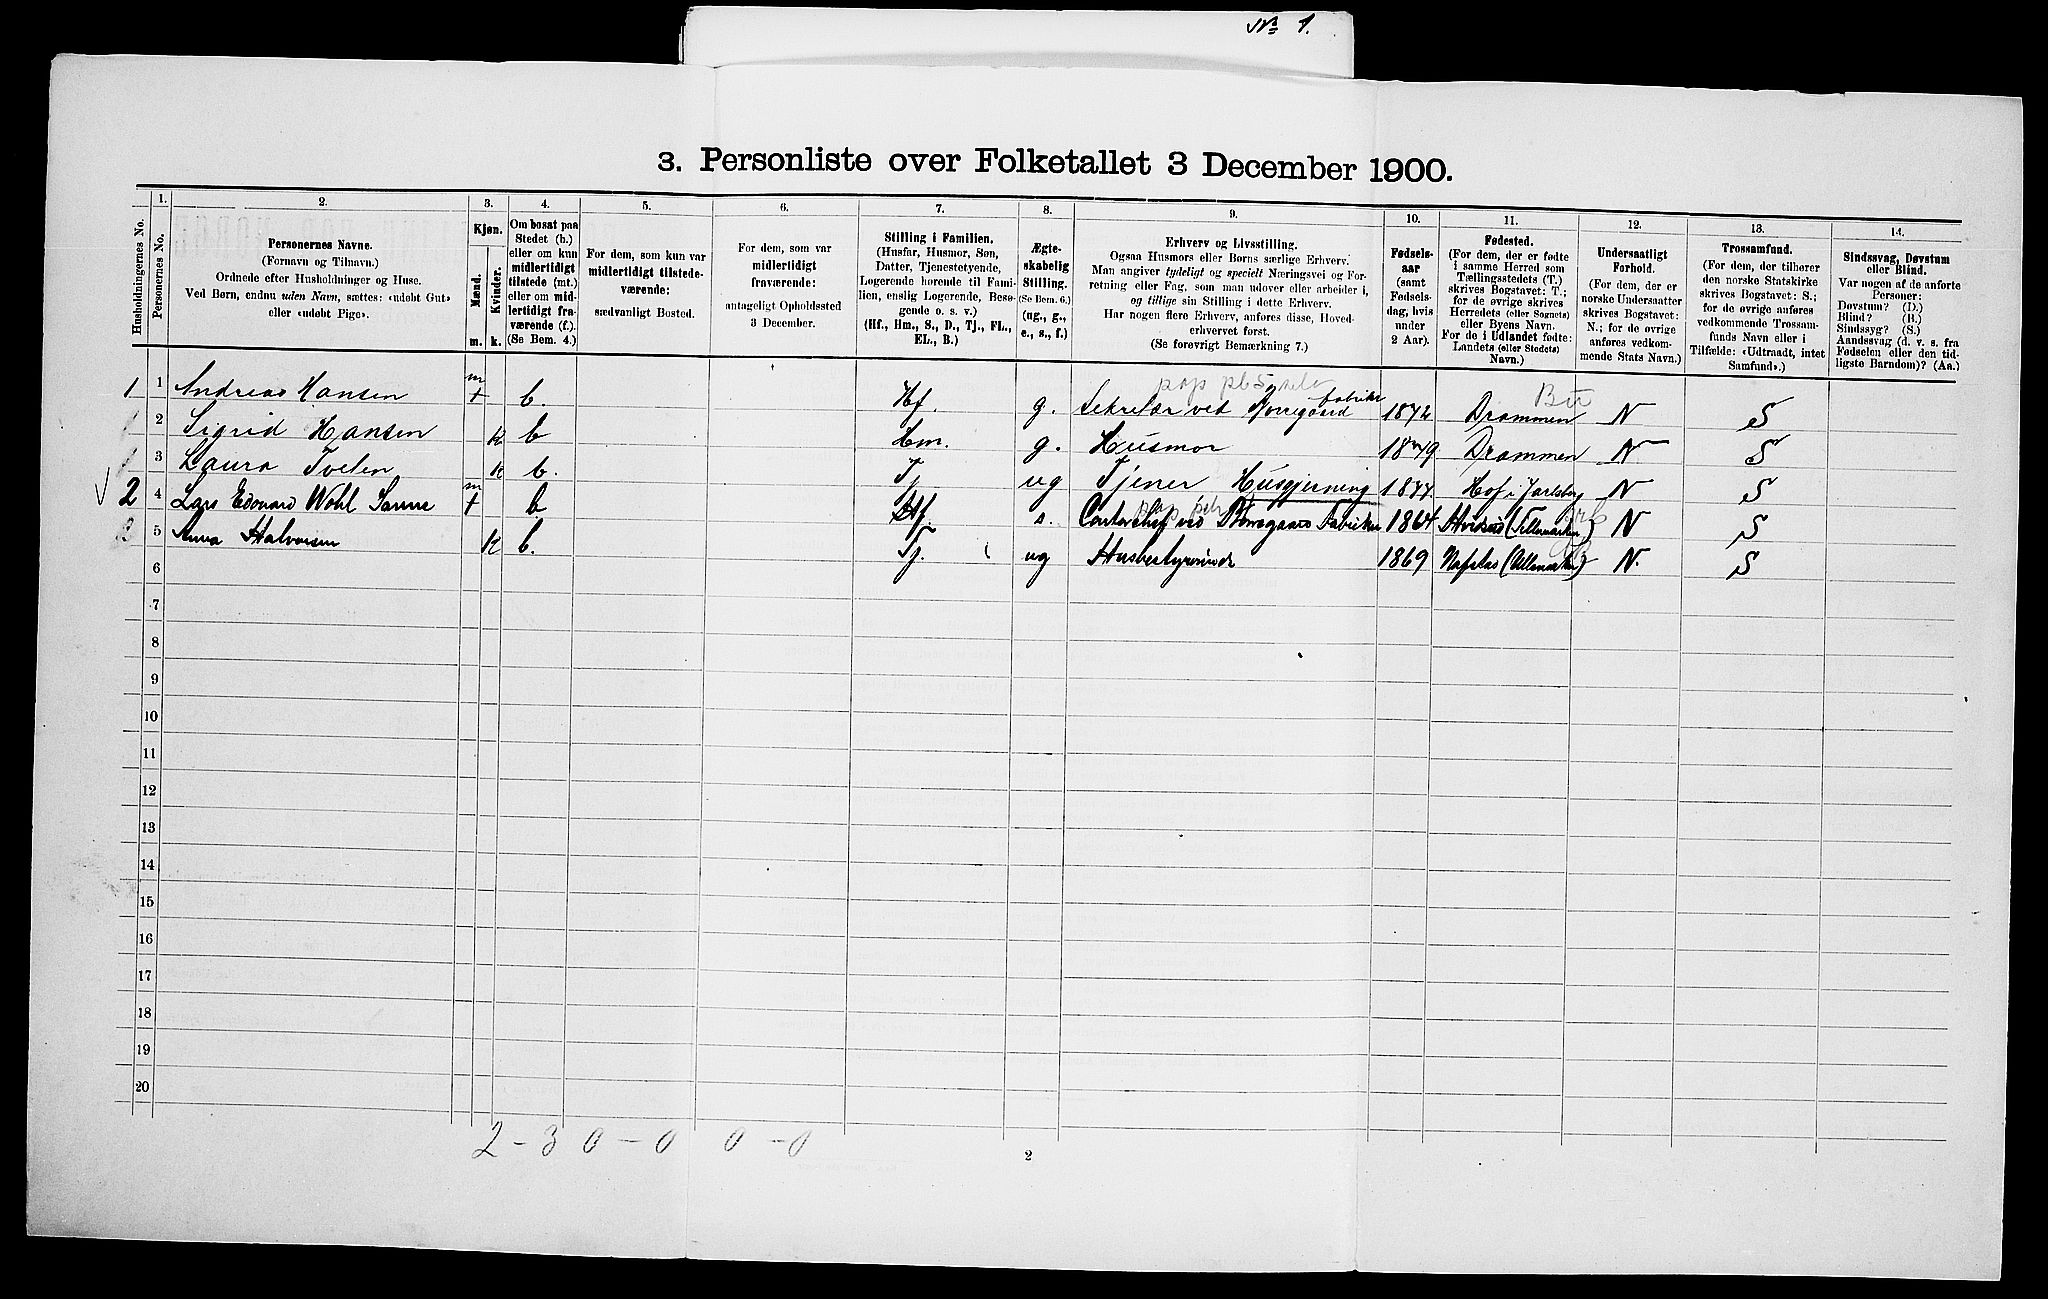 № 1.
3. Personliste over Folketallet 3 December 1900.
Husholdningernes No.
1. Personernes No.
2. Personernes Navne.
(Fornavn og Tilnavn.)
Ordnede efter Husholdninger og Huse.
Ved Børn, endnu uden Navn, sættes: «udøbt Gut»
eller «udøbt Pige».
3. Kjøn.
Mænd. m.
Kvinder. k.
4. Om bosat paa
Stedet (b.)
eller om kun
midlertidigt
tilstede (mt.)
eller om mid-
lertidigt fra-
værende (f.).
(Se Bem. 4.)
5. For dem, som kun var
midlertidigt tilstede-
værende:
sædvanligt Bosted.
6. For dem, som var
midlertidigt
fraværende:
antageligt Opholdssted
3 December.
7. Stilling i Familien.
(Husfar, Husmor, Søn,
Datter, Tjenestetyende,
Logerende hørende til Fami-
lien, enslig Logerende, Besø-
gende o. s. v.)
(Hf., Hm., S., D., Tj., FL.,
EL., B.)
8. Ægte-
skabelig
Stilling.
(Se Bem. 6.)
(ug., g.,
e., s., f.)
9. Erhverv og Livsstilling.
Ogsaa Husmors eller Børns særlige Erhverv.
Man angiver tydeligt og specielt Næringsvei og For-
retning eller Fag, som man udover eller arbeider i,
og tillige sin Stilling i dette Erhverv.
Har nogen flere Erhverv, anføres disse, Hoved-
erhvervet først.
(Se forøvrigt Bemærkning 7.)
10. Fødsels-
aar
(samt
Fødsels-
dag, hvis
under
2 Aar).
11. Fødested.
(For dem, der er fødte
i samme Herred som
Tællingsstedets (T.)
skrives Bogstavet: T.;
for de øvrige skrives
Herredets (eller Sognets)
eller Byens Navn.
For de i Udlandet fødte:
Landets (eller Stedets)
Navn.)
12. Undersaatligt
Forhold.
(For dem, der er
norske Undersaatter
skrives Bogstavet:
N.; for de øvrige
anføres vedkom-
mende Stats Navn.)
13. Trossamfund.
(For dem, der tilhører
den norske Statskirke
skrives Bogstavet: S.;
for de øvrige anføres
vedkommende Trossam-
funds Navn eller i
Tilfælde: «Udtraadt, intet
Samfund».)
14. Sindssvag, Døvstum
eller Blind.
Var nogen af de anførte
Personer:
Døvstum? (D.)
Blind? (B.)
Sindssyg? (S.)
Aandssvag (d. v. s. fra
Fødselen eller den tid-
ligste Barndom)? (Aa.)
1 1 Andreas Hansen m + b. Hf. g. Sekretær ved Borregaard Fabriker 1872 Drammen N S
1 2 Sigrid Hansen k b Hm. g. Husmor 1879 Drammen N S
1 3 Laura Tveten k b. T. ug Tjener Husgjerning 1877. Hof i Jarlsberg N S
2 4 Lars Edouard Wohl Sanne m + b Hf s. Contorchef ved Borregaard Fabriker 1864 N S
3 5 Anna Halvorsen k b. Tj. ug Husbestyrerinde 1869 N. S
6
7
8
9
10
11
12
13
14
15
16
17
18
19
20
2 – 3 0 – 0 0 – 0
2